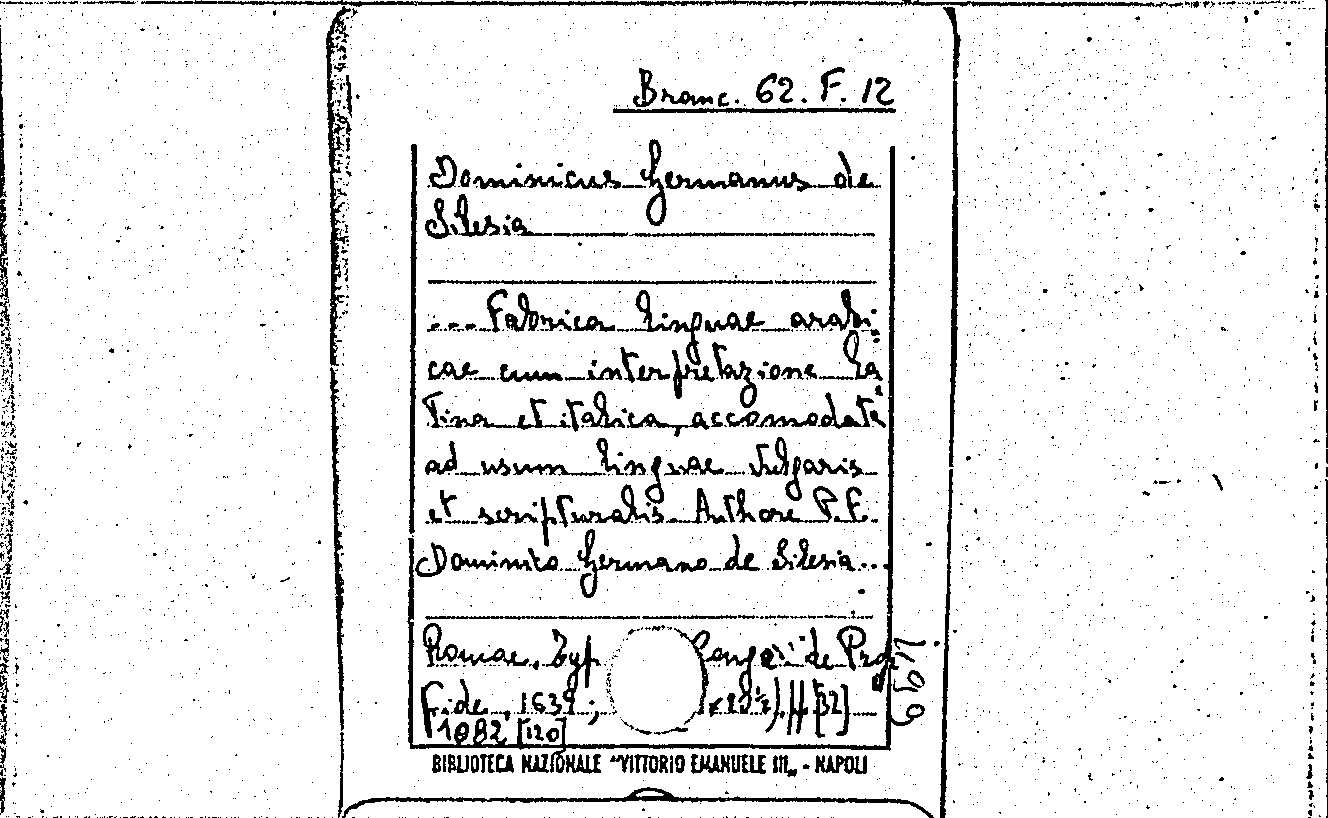 Branc. 62. F. 12
Dominicus Germanus de
Silesia
... Fabrica linguae arabi:
cae cum interpretazione la
tina et italica, accomodate
ad usum linguae vulgaris
et scripturalis Authore P.F.
Dominico Germano de Silesia...
Romae, Typ Congr. de Prop
Fide, 1639; [32]
1082 [120]
BIBLIOTECA NAZIONALE "VITTORIO EMANUELE III„ - NAPOLI